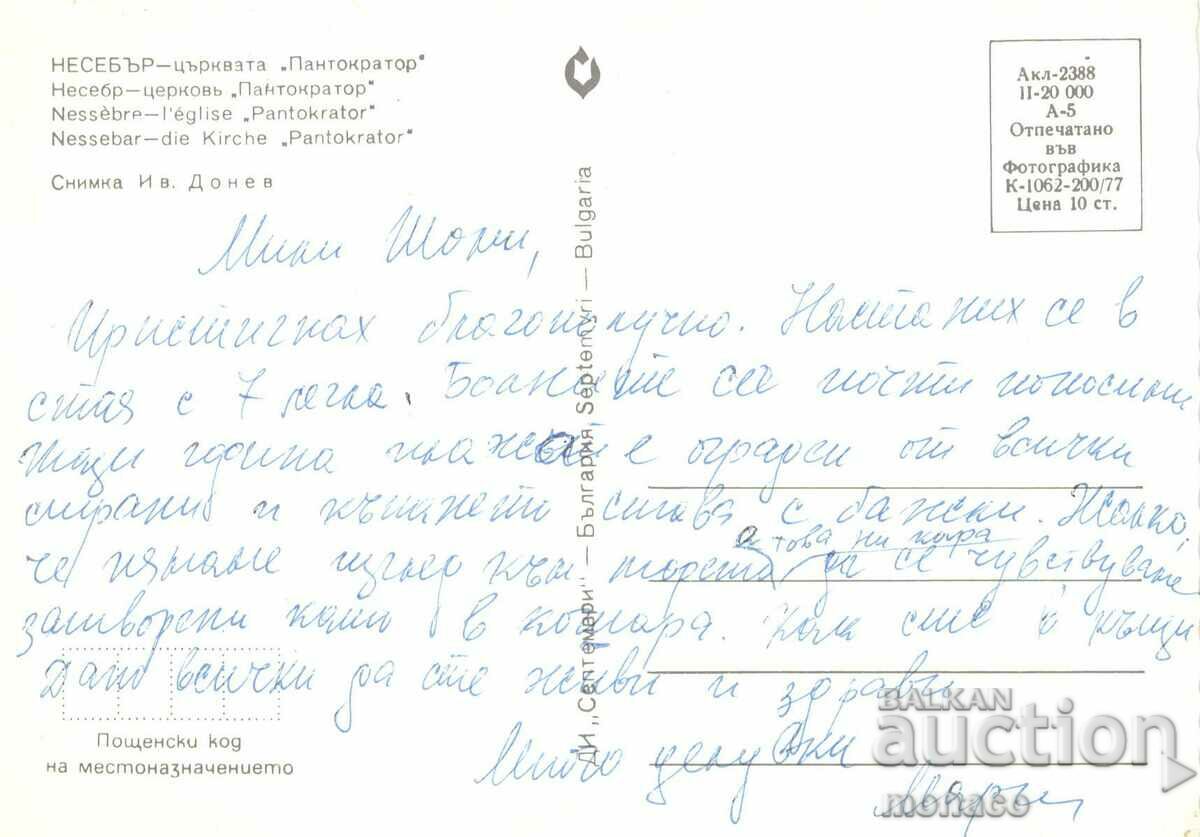 НЕСЕБЪР—църквата „Пантократор"
Несебр—церковь „Пантократор"
Nessèbre—l'église „Pantokrator"
Nessebar—die Kirche „Pantokrator"
Снимка Ив. Донев
Акл-2388
II-20 000
А-5
Отпечатано
във
Фотографика
К-1062-200/77
Цена 10 ст.
ДИ „Септември" — България Septemvri — Bulgaria
Мили
Пристигнах благополучно. Настаних се в
стая с 7 легла. се почти
Тази година плажът е ограден от всички
страни и къпането става с Жалко,
че нямаме изглед към морето, а това ни кара да се чувствуваме
затворени като в кошара. Как сте в къщи
Дано всички да сте живи и здрави
Много целувки
Пощенски код
на местоназначението
BALKAN
auction
monaco